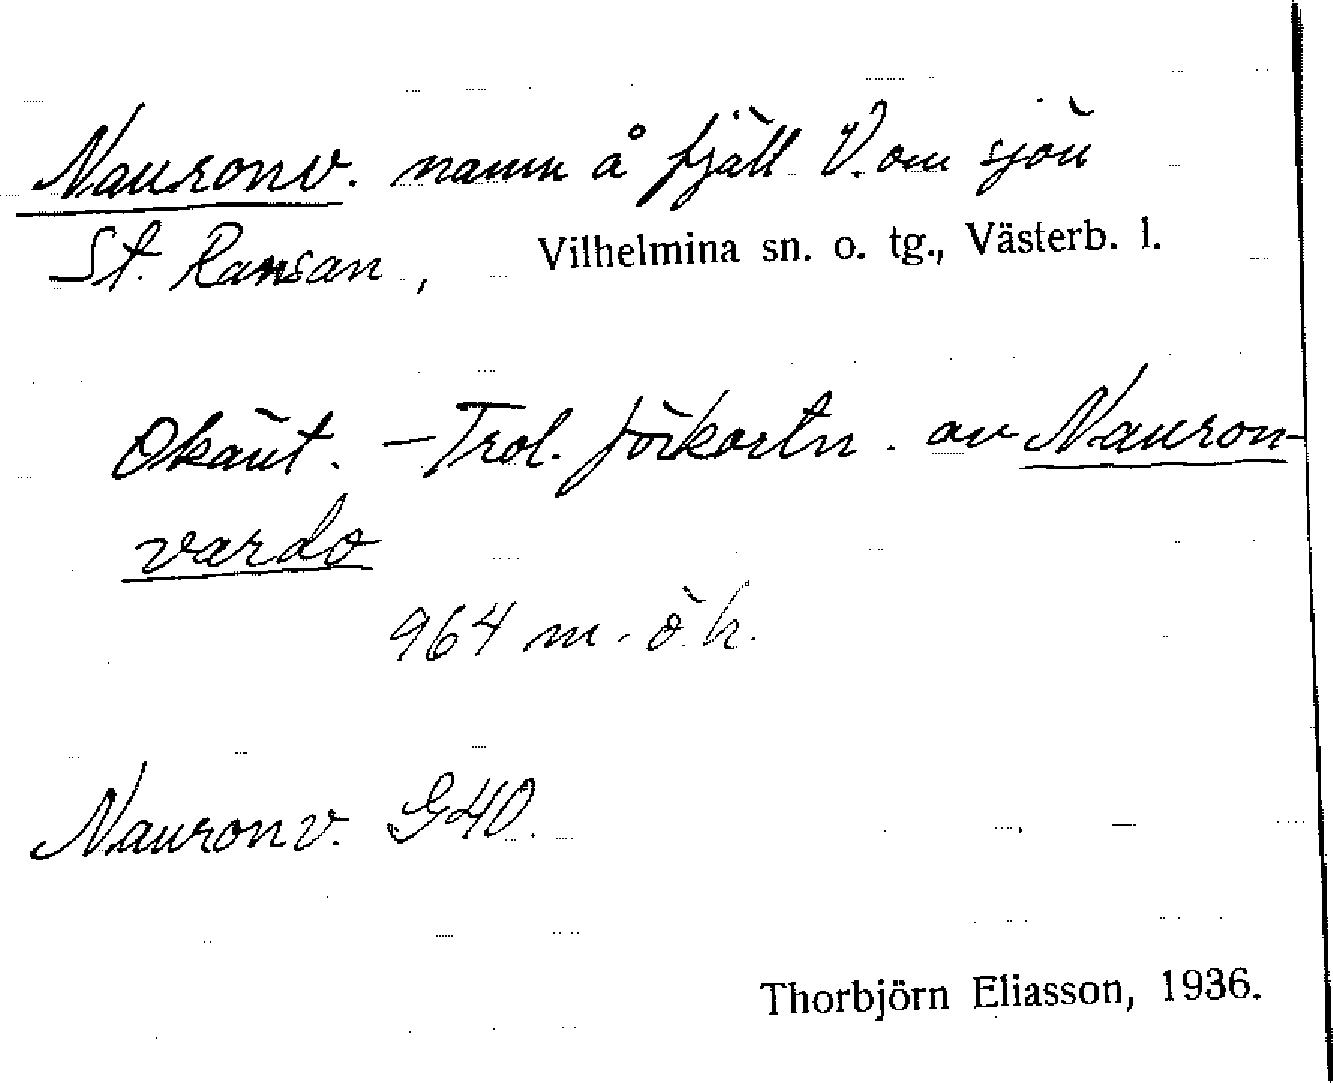 Nauronv. namn å fjäll V. om sjön
St. Ransan, Vilhelmina sn. o. tg., Västerb. l.
Okänt. – Trol. förkortn. av Nauron-
vardo
964 m. ö. h.
Nauronv. G40.
Thorbjörn Eliasson, 1936.